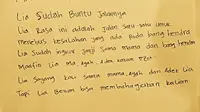 Lia Sudah Buntu Jalannya
Lia Rasa ini adalah jalan satu-satu untuk
menebus kesalahan yang ada pada bang hendra
Lia Sudah ingkar janji Sama mama dan bang hendra
Maafin Lia ma, ayah, adek
Lia Sayang kali Sama mama, ayah dan adek Lia
Tapi Lia Belum bisa membahagiakan kalian